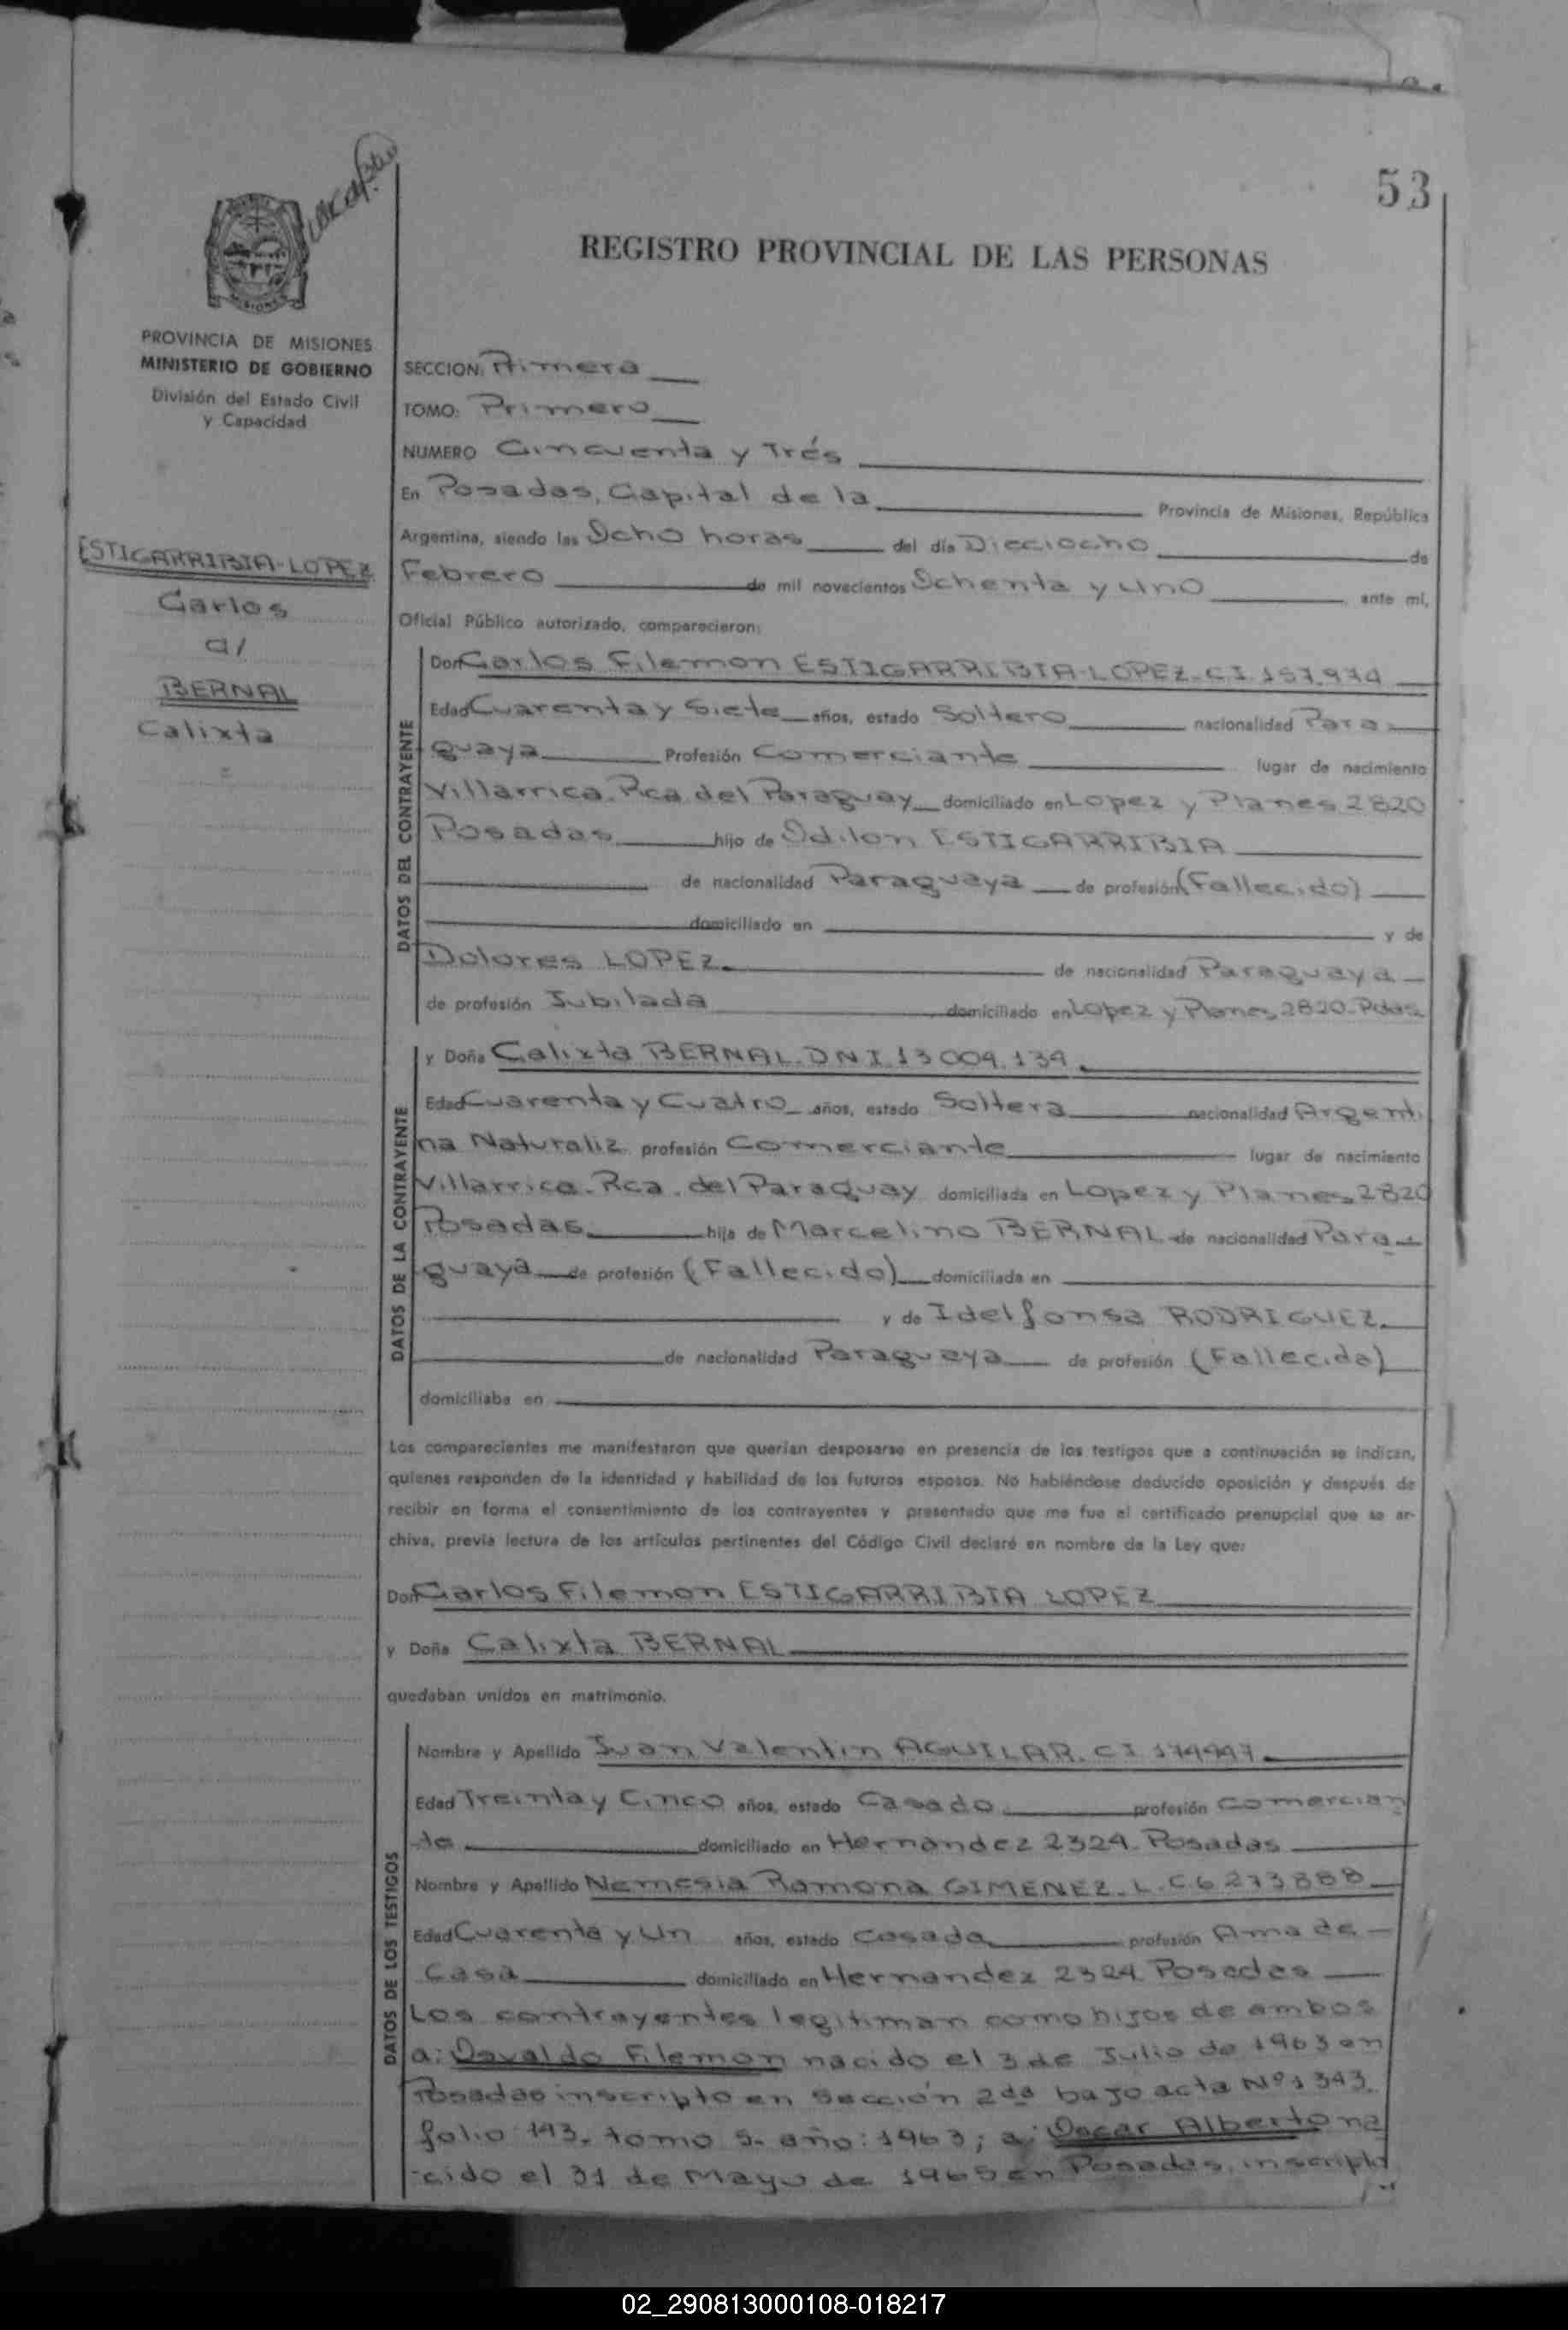 53
REGISTRO PROVINCIAL DE LAS PERSONAS
MISIONES
PROVINCIA DE MISIONES
MINISTERIO DE GOBIERNO
División del Estado Civil
y Capacidad
ESTIGARRIBIA-LOPEZ
Carlos
c/
BERNAL
Calixta
SECCION: Primera
TOMO: Primero
NUMERO Cincuenta y Trés
En Posadas, Capital de la Provincia de Misiones, República
Argentina, siendo las Ocho horas del día Dieciocho de
Febrero de mil novecientos Ochenta y Uno, ante mí,
Oficial Público autorizado, comparecieron:
DATOS DEL CONTRAYENTE
Don Carlos Filemon ESTIGARRIBIA-LOPEZ-C.I. 157.974
Edad Cuarenta y Siete años, estado Soltero nacionalidad Para-
guaya Profesión Comerciante lugar de nacimiento
Villarrica. Rca. del Paraguay domiciliado en Lopez y Planes 2820
Posadas hijo de Odilon ESTIGARRIBIA
de nacionalidad Paraguaya de profesión (Fallecido)
domiciliado en y de
Dolores LOPEZ. de nacionalidad Paraguaya
de profesión Jubilada domiciliado en Lopez y Planes 2820-Pdas.
DATOS DE LA CONTRAYENTE
y Doña Calixta BERNAL-DNI.13.009.139.
Edad Cuarenta y Cuatro años, estado Soltera nacionalidad Argenti
na Naturaliz. profesión Comerciante lugar de nacimiento
Villarrica. Rca. del Paraguay domiciliada en Lopez y Planes 2820
Posadas hija de Marcelino BERNAL de nacionalidad Para-
guaya de profesión (Fallecido) domiciliada en
y de Idelfonsa RODRIGUEZ.
de nacionalidad Paraguaya de profesión (Fallecida)
domiciliaba en
Los comparecientes me manifestaron que querían desposarse en presencia de los testigos que a continuación se indican,
quienes responden de la identidad y habilidad de los futuros esposos. No habiéndose deducido oposición y después de
recibir en forma el consentimiento de los contrayentes y presentado que me fue el certificado prenupcial que se ar-
chiva, previa lectura de los artículos pertinentes del Código Civil declaré en nombre de la Ley que:
Don Carlos Filemon ESTIGARRIBIA LOPEZ
y Doña Calixta BERNAL
quedaban unidos en matrimonio.
DATOS DE LOS TESTIGOS
Nombre y Apellido Juan Valentin AGUILAR. CI 174447.
Edad Treinta y Cinco años, estado Casado profesión Comercian
te domiciliado en Hernandez 2324. Posadas
Nombre y Apellido Nemesia Ramona GIMENEZ. L.C. 6 273888
Edad Cuarenta y Un años, estado Casada profesión Ama de
Casa domiciliado en Hernandez 2324. Posadas
Los contrayentes legitiman como hijos de ambos
a: Osvaldo Filemon nacido el 3 de Julio de 1963 en
Posadas inscripto en Sección 2da bajo acta Nº1343.
folio 143. tomo 5. año: 1963; a: Oscar Alberto na
cido el 31 de Mayo de 1965 en Posadas, inscripto
02_290813000108-018217